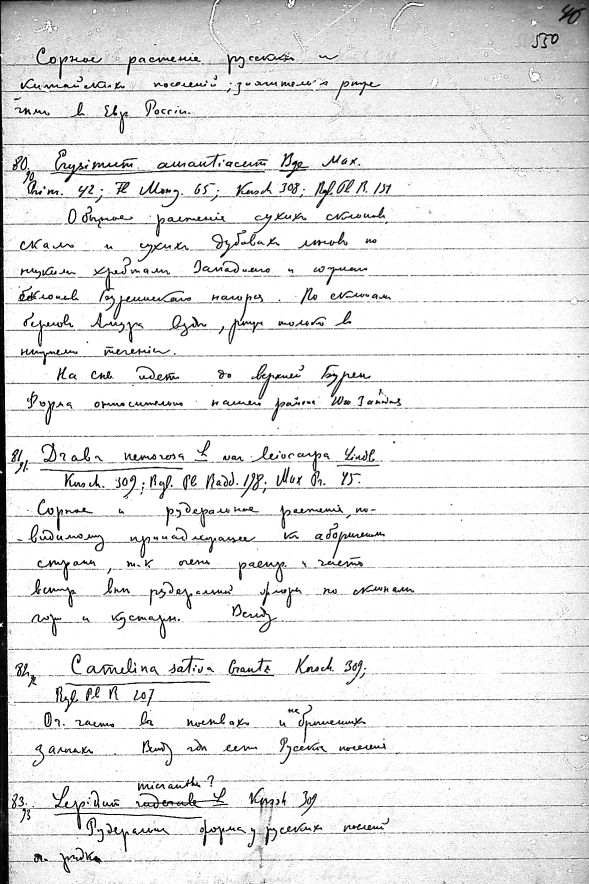 46
550
Сорное растение русских и
китайских поселений; значительно реже
чем в Евр России.
80. Erysimum aurantiacum Bge Max.
90
Prim. 42; Fl Mong. 65; Korsch 308; Rgl. Pl R. 151
Обычное растение сухих склонов,
скал и сухих дубовых лесов по
низким хребтам Западного и южного
склонов Буреинского нагорья. По склонам
берегов Амура везде, реже только в
нижнем течении.
На сев идет до верхней Буреи
Форма относительно нашего района
81. Draba nemorosa L var leiocarpa Lindl
91.
Korsch. 309; Rgl. Pl Radd. 198; Max Pr. 45.
Сорное и рудеральное растение, по-
видимому принадлежащее к аборигенам
страны, т.к очень распр. и часто
встр вне рудеральной флоры по склонам
гор и кустарн. Везде
82. Camelina sativa Crantz Korsch. 309;
92
Rgl Pl R 207
Оч. часто в посевах и не брошенных
залежах. Везде где есть Русския поселения
83. Lepidium ruderale L Korsch 309
93
micrantha?
Рудеральная форма у русских поселений
оч. редко